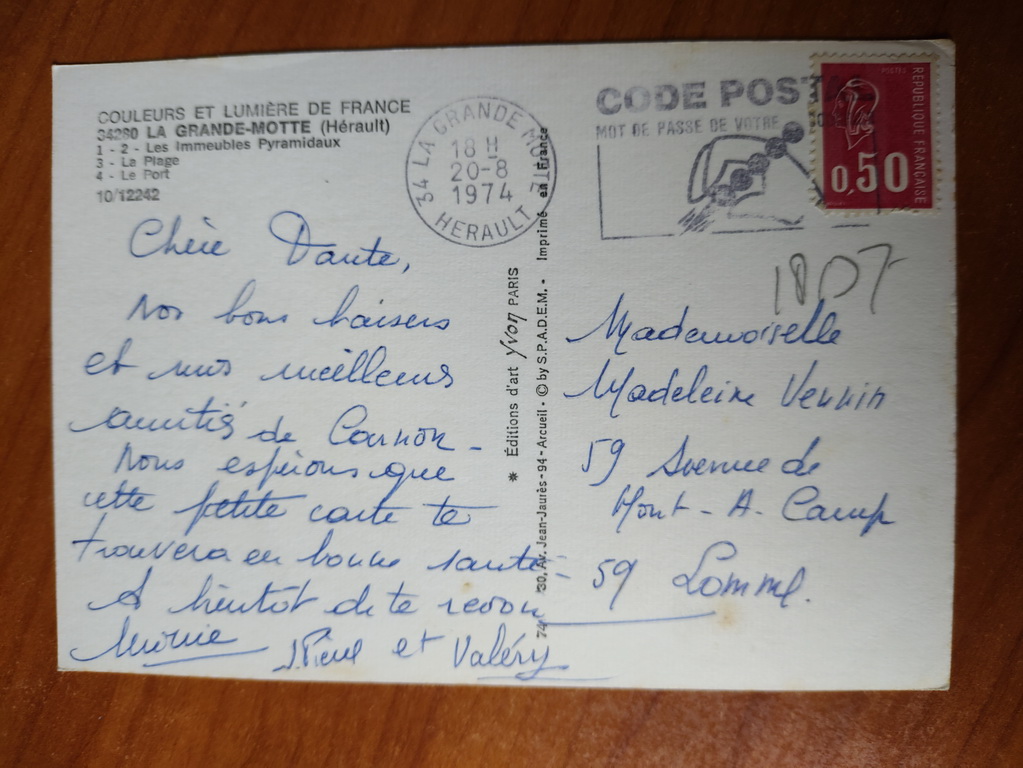 COULEURS ET LUMIÈRE DE FRANCE
34280 LA GRANDE-MOTTE (Hérault)
1 - 2 - Les Immeubles Pyramidaux
3 - La Plage
4 - Le Port
10/12242
34 LA GRANDE MOTTE
18 H
20-8
1974
HERAULT
CODE POSTAL
MOT DE PASSE DE VOTRE
POSTES
RÉPUBLIQUE FRANÇAISE
0,50
Chère Dante,
Nos bons baisers
et nos meilleures
amitiés de Carnon -
Nous espérons que
cette petite carte te
trouvera en bonne santé -
A bientôt de te revoir
J. Paul et Valéry
✷ Éditions d'art Yvon PARIS
74 30, Av. Jean-Jaurès - 94 - Arcueil - © by S.P.A.D.E.M. - Imprimé en France
Mademoiselle
Madeleine Vennin
59 Avenue de
Mont - A - Camp
59 Lomme.